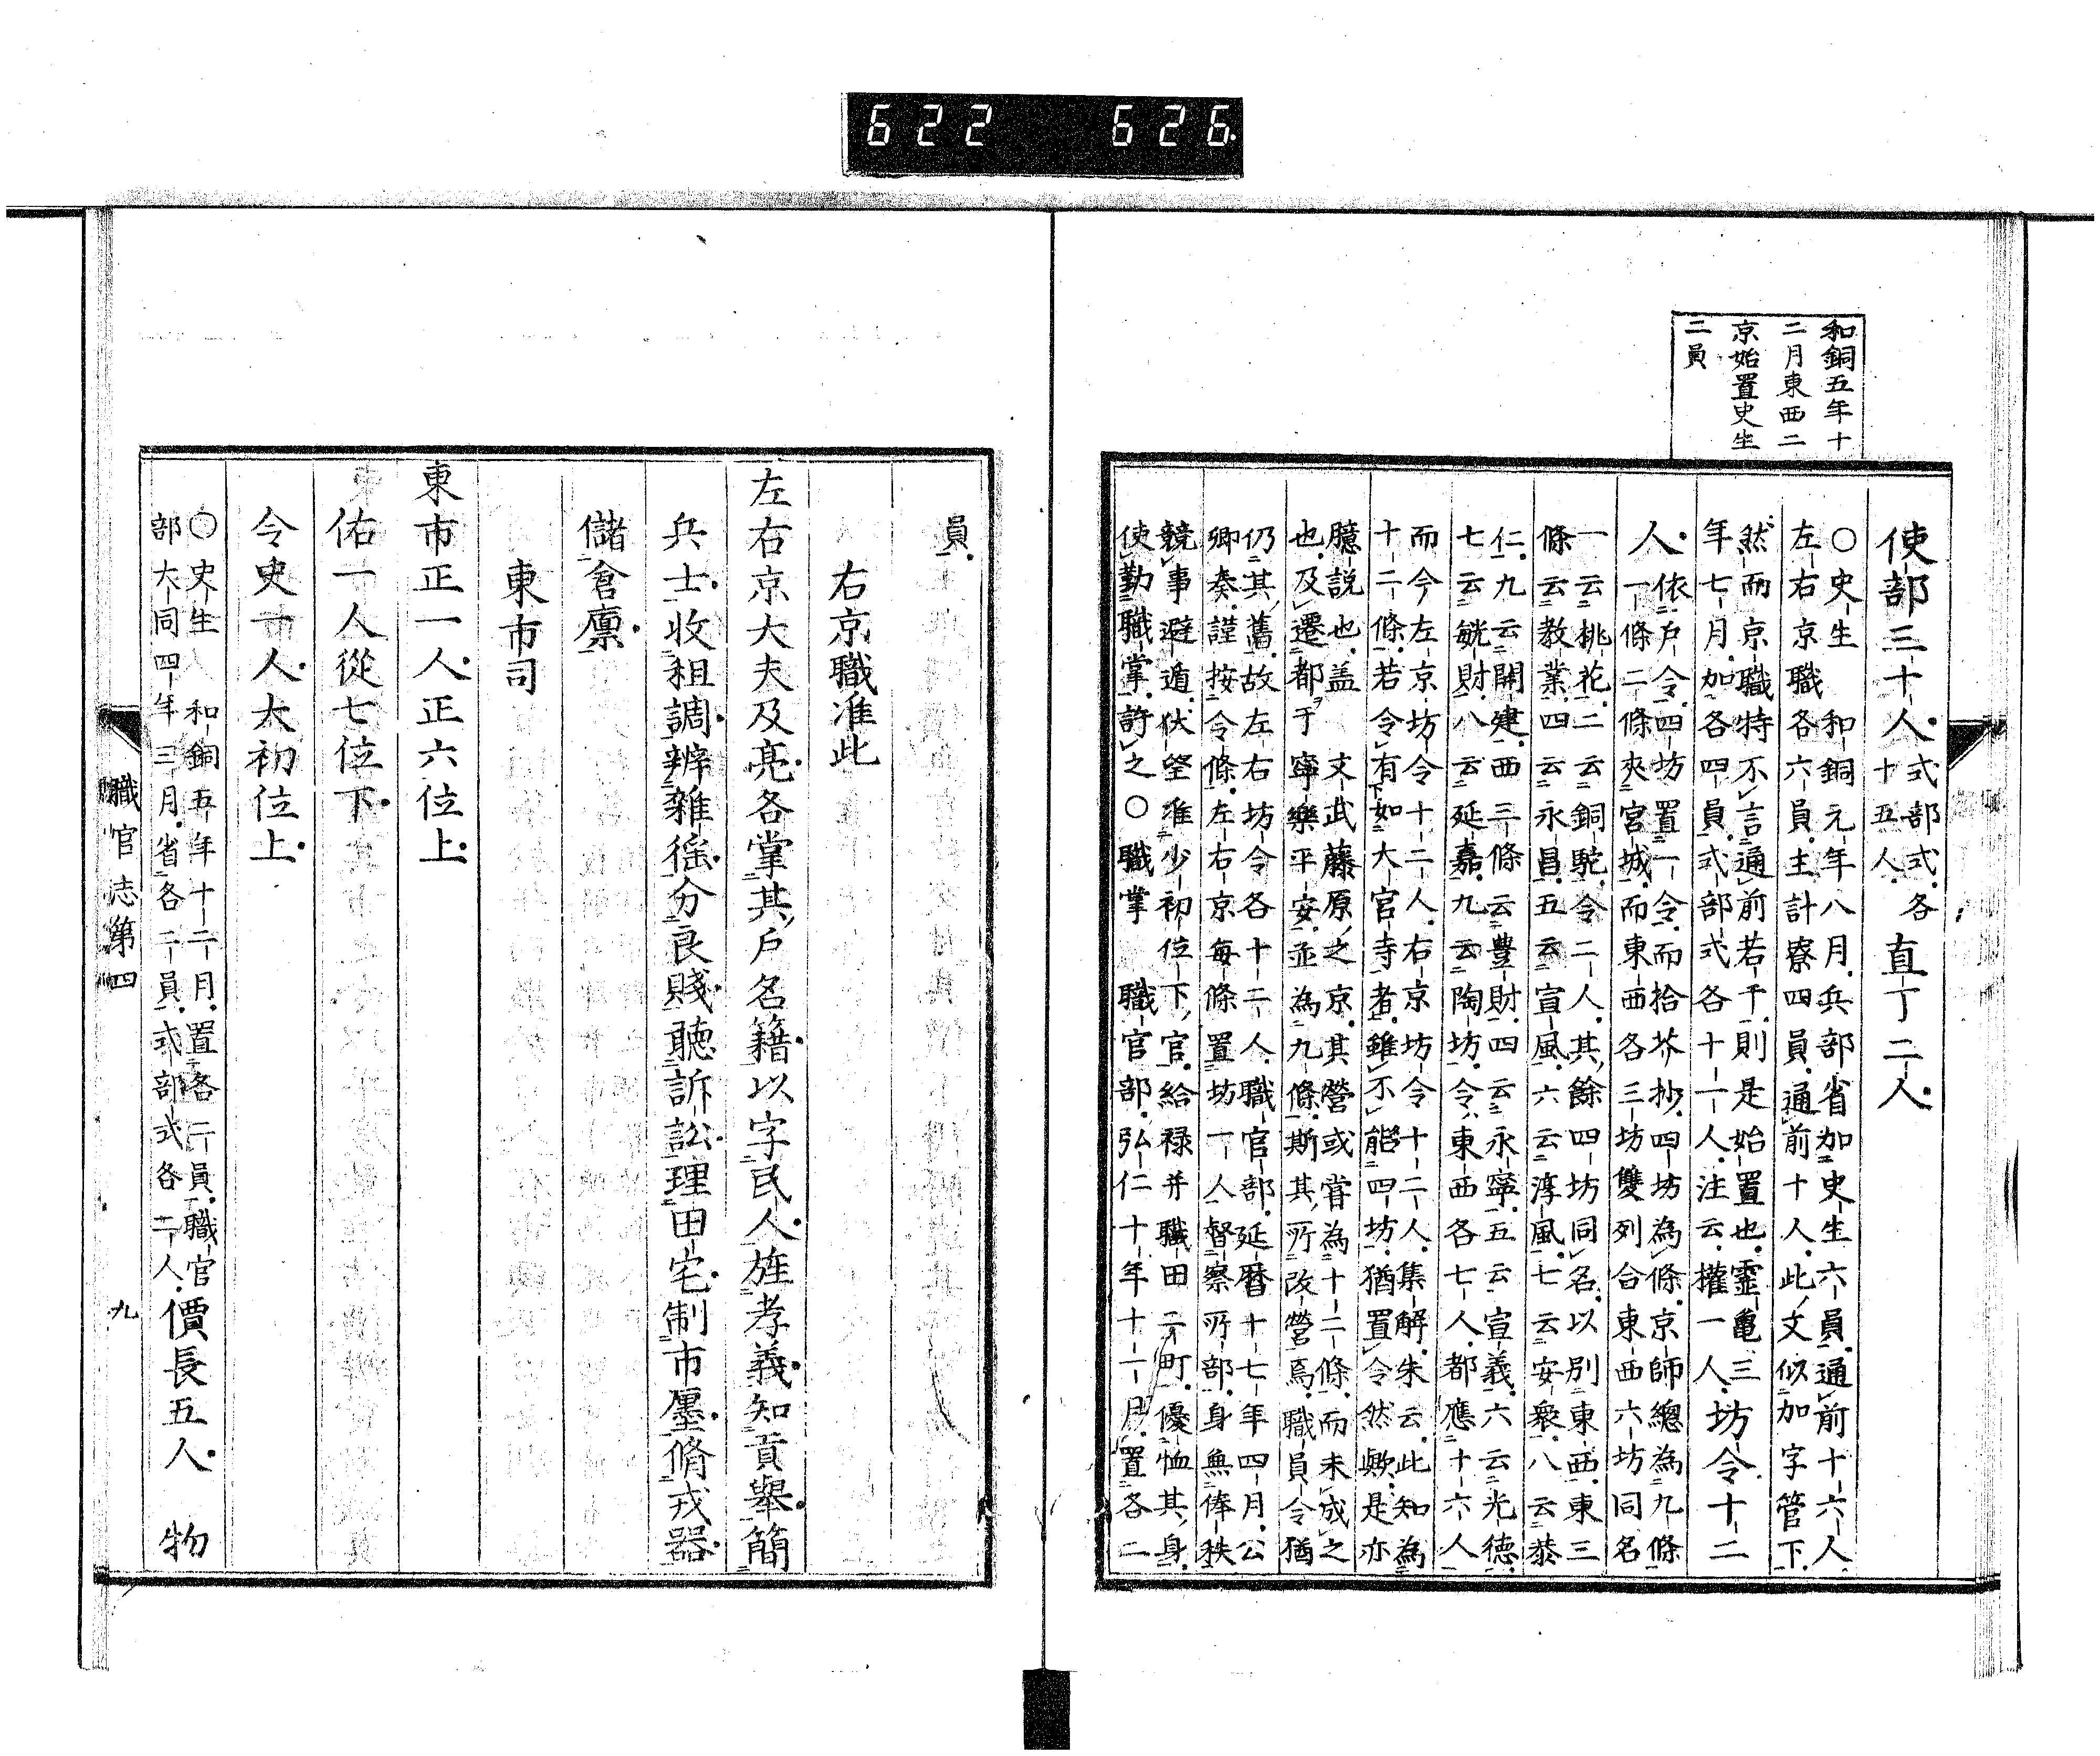 622 626
和銅五年十
二月東西二
京始置史生
二員
使部三十人式部式各十五人直丁二人
○史生 和銅元年八月兵部省加史生六員通前十六人
左右京職各六員主計寮四員通前十人此文似加字管下
然而京職特不言通前若干則是始置也靈龜三
年七月加各四員式部式各十一人注云權一人坊令十二
人依戶令四坊置一令而拾芥抄四坊為條京師總為九條
一條二條夾宮城而東西各三坊雙列合東西六坊同名
一云桃花二云銅駝令二人其餘四坊同名以別東西東三
條云教業四云永昌五云宣風六云淳風七云安衆八云崇
仁九云開建西三條云豐財四云永寧五云宣義六云光德
七云毓財八云延嘉九云陶坊令東西各七人都應十六人
而今左京坊令十二人右京坊令十二人集解朱云此知為
十二條若令有如大官寺者雖不能四坊猶置令然歟是亦
臆說也盖 文武藤原之京其營或嘗為十二條而未成之
也及遷都于寧樂平安並為九條斯其所改營焉職員令猶
仍其舊故左右坊令各十二人職官部延曆十七年四月公
卿奏謹按令條左右京每條置坊一人督察所部身無俸秩
競事避遁伏望准少初位下官給祿并職田二町優恤其身
使勤職掌許之○職掌 職官部弘仁十年十一月置各二
員
右京職准此
左右京大夫及亮各掌其戶名籍以字民人旌孝義知貢舉簡
兵士收租調辨雜徭分良賤聽訴訟理田宅制市廛脩戎器
儲倉廩
東市司
東市正一人正六位上
佑一人從七位下
令史一人大初位上
○史生 和銅五年十二月置各二員職官
部大同四年三月省各二員式部式各二人價長五人 物
職官志第四 九